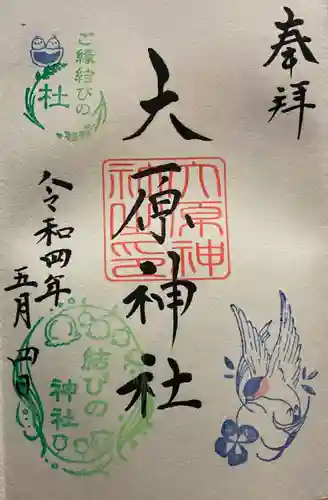 奉拝
ご縁結びの
杜
大原神社
大原神
社之印
令和四年
五月四日
結びの
神社